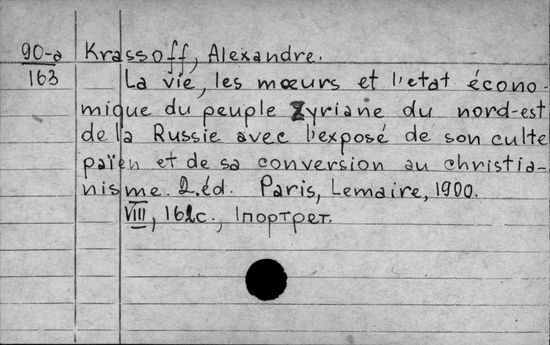 90-a Krassoff, Alexandre.
163 La vie, les mœurs et l'etat écono-
mique du peuple Zyriane du nord-est
de la Russie avec l'exposé de son culte
païen et de sa conversion au christia-
nisme. 2.éd. Paris, Lemaire, 1900.
VIII, 162с., 1портрет.